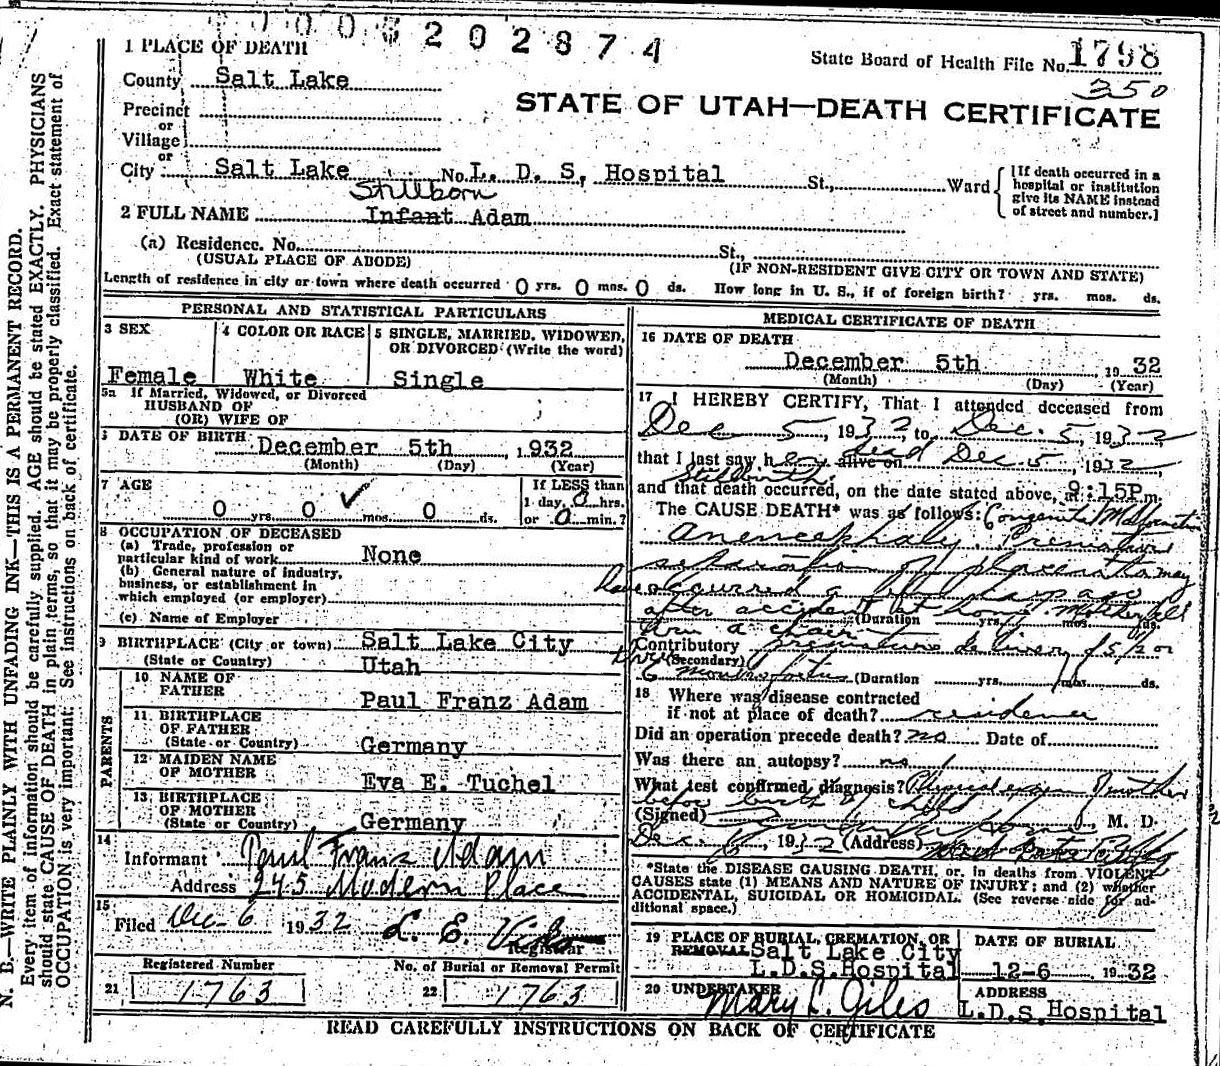 1 0 0 3 2 0 2 8 7 4
1 PLACE OF DEATH
State Board of Health File No. 1798
350
County Salt Lake
STATE OF UTAH—DEATH CERTIFICATE
Precinct
or
Village
or
City Salt Lake No. L. D. S. Hospital St., Ward
[If death occurred in a hospital or institution give its NAME instead of street and number.]
Stillborn
2 FULL NAME Infant Adam
(a) Residence. No. St.,
(USUAL PLACE OF ABODE) (IF NON-RESIDENT GIVE CITY OR TOWN AND STATE)
Length of residence in city or town where death occurred 0 yrs. 0 mos. 0 ds. How long in U. S., if of foreign birth? yrs. mos. ds.
PERSONAL AND STATISTICAL PARTICULARS
3 SEX 4 COLOR OR RACE 5 SINGLE, MARRIED, WIDOWED, OR DIVORCED (Write the word)
Female White Single
5a If Married, Widowed, or Divorced
HUSBAND OF
(OR) WIFE OF
6 DATE OF BIRTH December 5th, 1932
(Month) (Day) (Year)
7 AGE If LESS than
1 day, 0 hrs.
0 yrs 0 mos. 0 ds. or 0 min.?
8 OCCUPATION OF DECEASED
(a) Trade, profession or
particular kind of work None
(b) General nature of industry,
business, or establishment in
which employed (or employer)
(c) Name of Employer
9 BIRTHPLACE (City or town) Salt Lake City
(State or Country) Utah
PARENTS
10 NAME OF
FATHER Paul Franz Adam
11. BIRTHPLACE
OF FATHER
(State or Country) Germany
12 MAIDEN NAME
OF MOTHER Eva E. Tuchel
13 BIRTHPLACE
OF MOTHER
(State or Country) Germany
14
Informant Paul Franz Adam
Address 245 Modern Place
15
Filed Dec 6 1932 L. E.
Registrar
Registered Number No. of Burial or Removal Permit
21 1763 22 1763
MEDICAL CERTIFICATE OF DEATH
16 DATE OF DEATH
December 5th 1932
(Month) (Day) (Year)
17 I HEREBY CERTIFY, That I attended deceased from
Dec 5, 1932, to Dec. 5, 1932
that I last saw her alive on dead Dec 5, 1932
Stillbirth
and that death occurred, on the date stated above, at 9:15P m.
The CAUSE DEATH* was as follows: Congenital Malformation
Anencephaly. Premature
separation of placenta may
have occurred
after accident at home Mother fell
(Duration yrs. mos. ds.
a chair
Contributory premature delivery of 5 1/2 or
(Secondary)
6 months (Duration yrs. mos. ds.
18 Where was disease contracted
if not at place of death? residence
Did an operation precede death? no Date of
Was there an autopsy? no
What test confirmed diagnosis? Physical exam of mother
before birth of child
(Signed) M. D.
Dec. 6, 1932 (Address)
*State the DISEASE CAUSING DEATH, or, in deaths from VIOLENT
CAUSES state (1) MEANS AND NATURE OF INJURY; and (2) whether
ACCIDENTAL, SUICIDAL OR HOMICIDAL. (See reverse side for ad-
ditional space.)
19 PLACE OF BURIAL, CREMATION, OR DATE OF BURIAL
REMOVAL Salt Lake City
L.D.S.Hospital 12-6 1932
20 UNDERTAKER ADDRESS
Mary L. Giles L.D.S.Hospital
READ CAREFULLY INSTRUCTIONS ON BACK OF CERTIFICATE
N. B.—WRITE PLAINLY WITH UNFADING INK—THIS IS A PERMANENT RECORD.
Every item of information should be carefully supplied. AGE should be stated EXACTLY. PHYSICIANS
should state CAUSE OF DEATH in plain terms, so that it may be properly classified. Exact statement of
OCCUPATION is very important. See instructions on back of certificate.